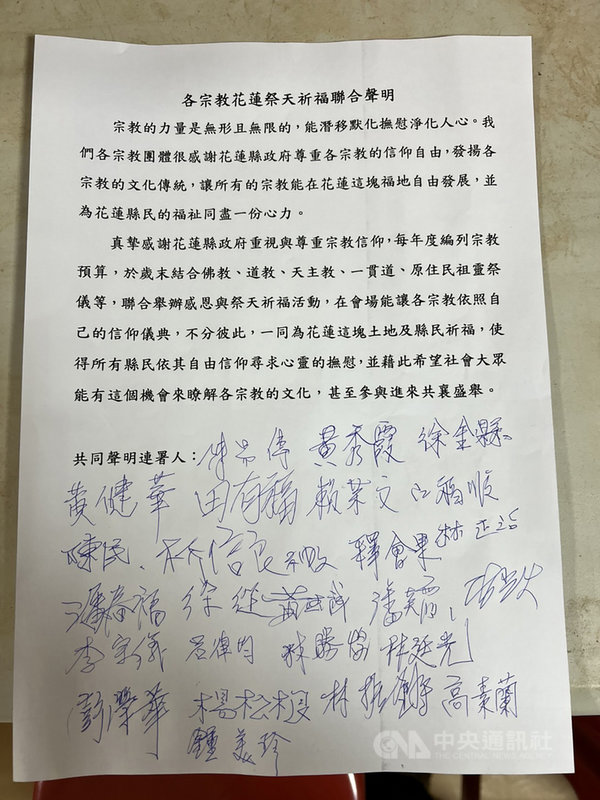 各宗教花蓮祭天祈福聯合聲明
宗教的力量是無形且無限的，能潛移默化撫慰淨化人心。我
們各宗教團體很感謝花蓮縣政府尊重各宗教的信仰自由，發揚各
宗教的文化傳統，讓所有的宗教能在花蓮這塊福地自由發展，並
為花蓮縣民的福祉同盡一份心力。
真摯感謝花蓮縣政府重視與尊重宗教信仰，每年度編列宗教
預算，於歲末結合佛教、道教、天主教、一貫道、原住民祖靈祭
儀等，聯合舉辦感恩與祭天祈福活動，在會場能讓各宗教依照自
己的信仰儀典，不分彼此，一同為花蓮這塊土地及縣民祈福，使
得所有縣民依其自由信仰尋求心靈的撫慰，並藉此希望社會大眾
能有這個機會來瞭解各宗教的文化，甚至參與進來共襄盛舉。
共同聲明連署人： 黃秀霞
黃健華 田有福 賴榮文
陳民 釋會果
李宗儀 林廷光
彭榮華 楊松椴 高素蘭
鍾美珍
CNA 中央通訊社
THE CENTRAL NEWS AGENCY